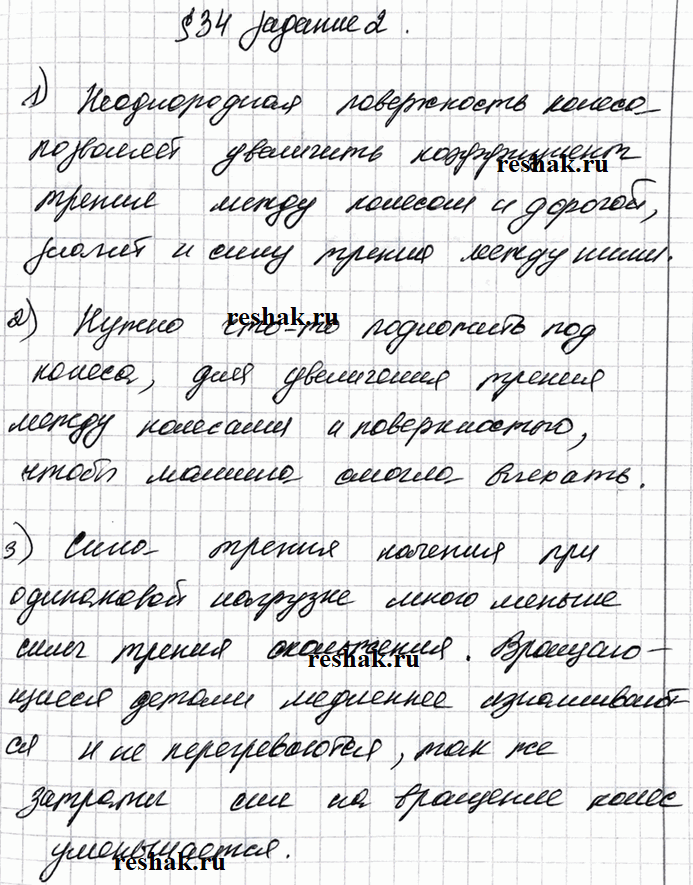 §34 задание 2.
1) Неоднородная поверхность колеса
позволяет увеличить коэффициент
reshak.ru
трение между колесом и дорогой,
значит и силу трения между ними.
2) Нужно что-то подложить под
reshak.ru
колеса, для увеличения трения
между колесами и поверхностью,
чтобы машина смогла выехать.
3) Сила трения качения при
одинаковой нагрузке много меньше
силы трения скольжения. Вращаю-
reshak.ru
щиеся детали медленнее изнашивают-
ся и не перегреваются, так же
затраты сил на вращение колес
уменьшается.
reshak.ru